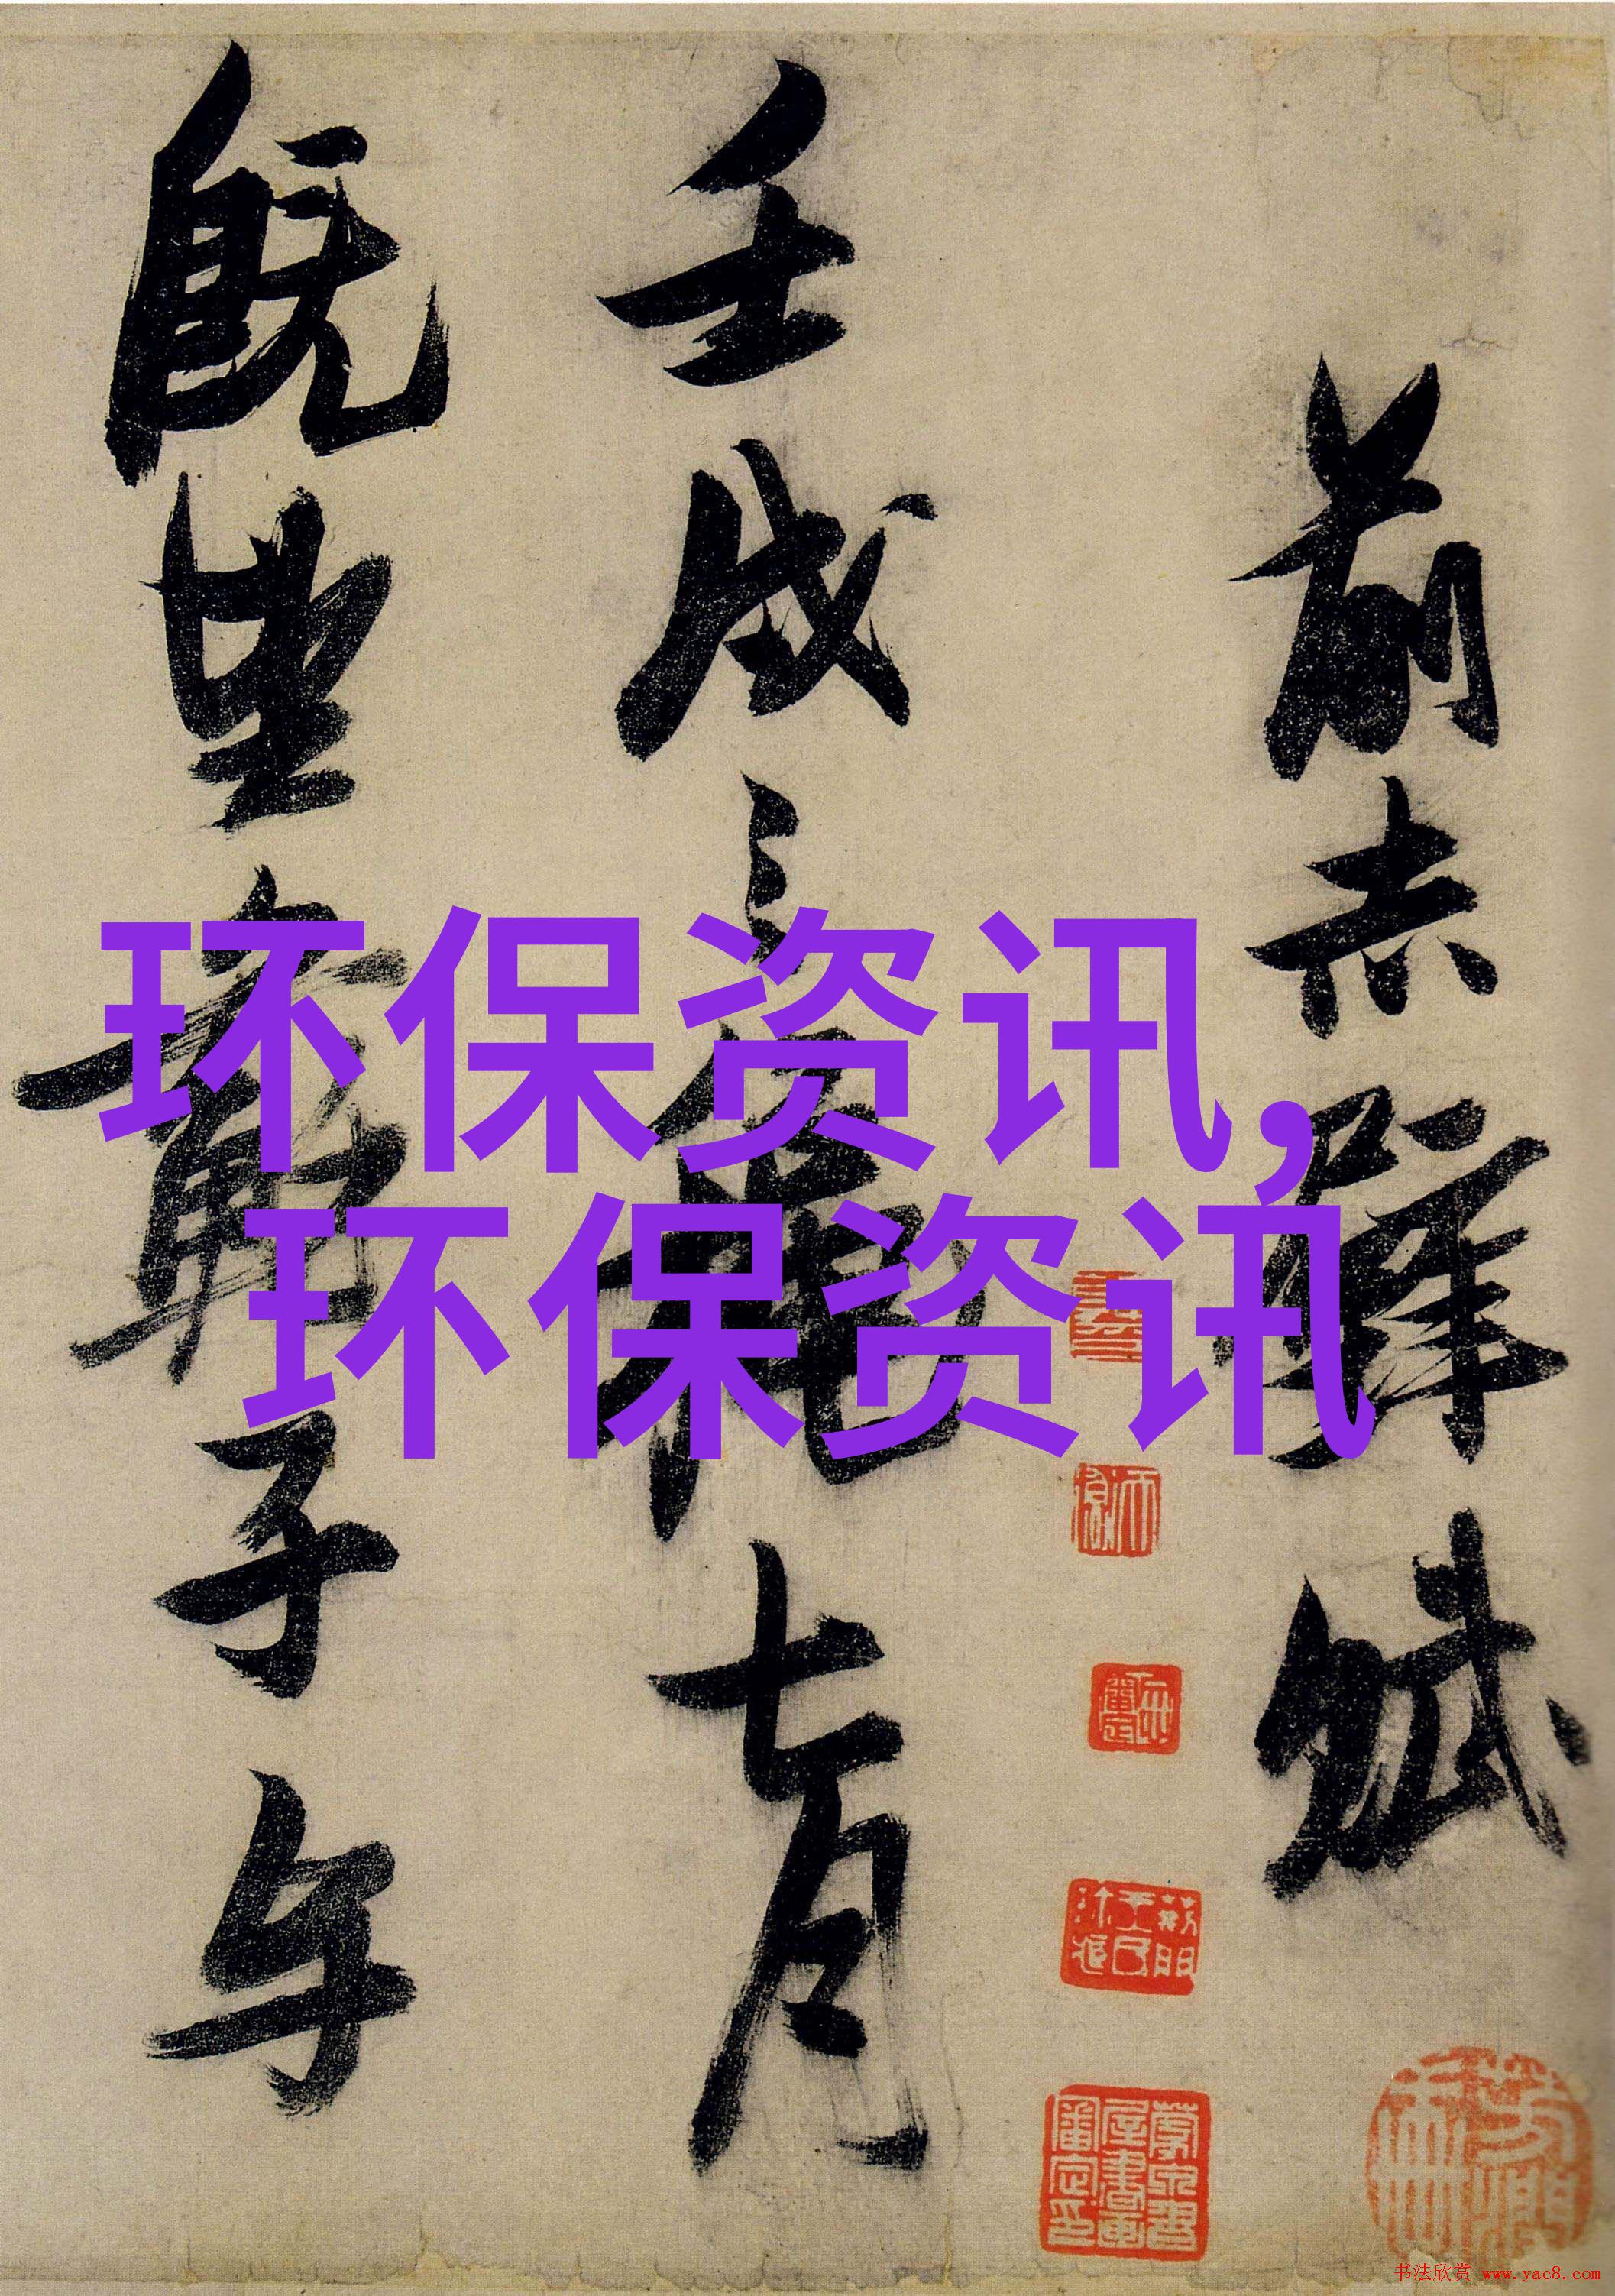 前赤壁賦
壬戌之龝七月
既望蘇子与
环保资讯,
环保资讯
书法欣赏 www.yac8.com